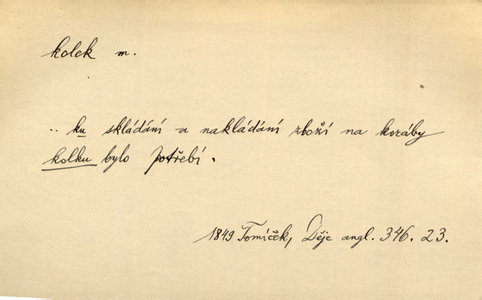 kolek m.
.. ku skládání a nakládání zboží na koráby
kolku bylo potřebí.
1849 Tomíček, Děje angl. 346. 23.